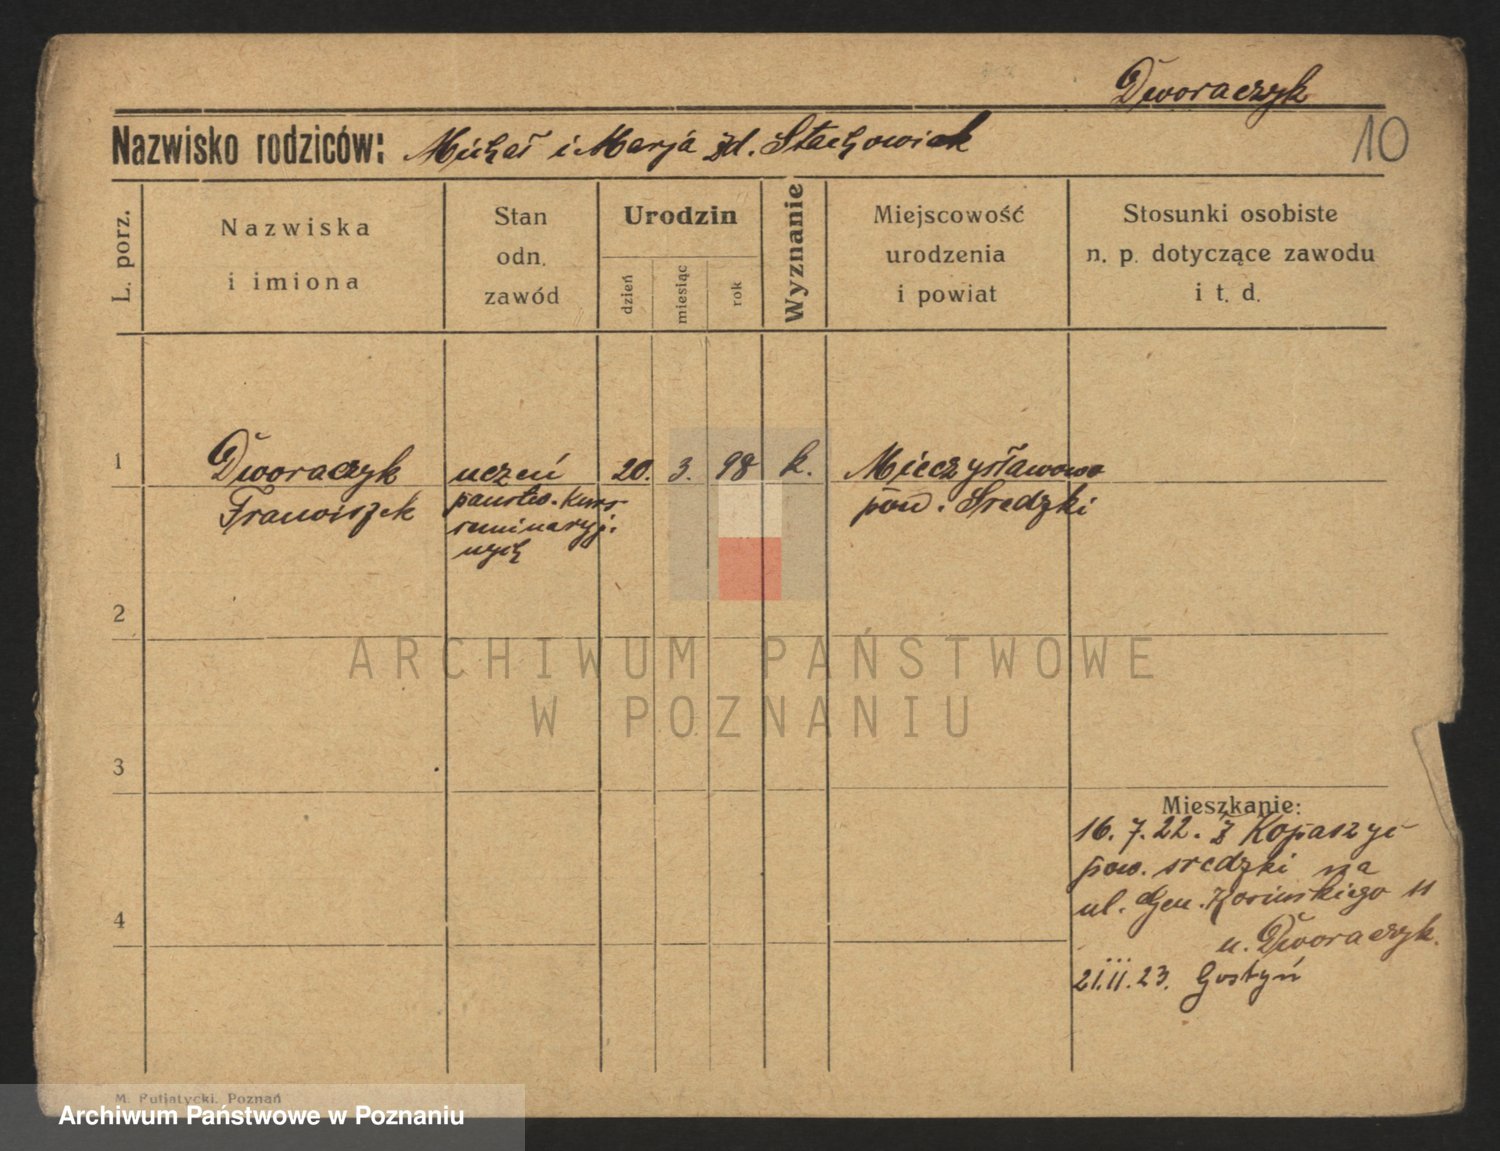 Dworaczyk
Nazwisko rodziców: Michał i Marja zd. Stachowiak
10
L. porz.
Nazwiska
i imiona
Stan
odn.
zawód
Urodzin
dzień
miesiąc
rok
Wyznanie
Miejscowość
urodzenia
i powiat
Stosunki osobiste
n. p. dotyczące zawodu
i t. d.
1 Dworaczyk uczeń 20. 3. 98 k. Mieczysławowo
Franciszek państw. kurs. pow. Sredzki
seminaryj.
nych
2
ARCHIWUM PAŃSTWOWE
W POZNANIU
3
Mieszkanie:
16. 7. 22. z Kopaszyc
pow. sredzki na
4
ul. Gen. Kosinskiego 11
u. Dworaczyk.
21.II.23. Gostyń
M. Putiatycki, Poznań
Archiwum Państwowe w Poznaniu